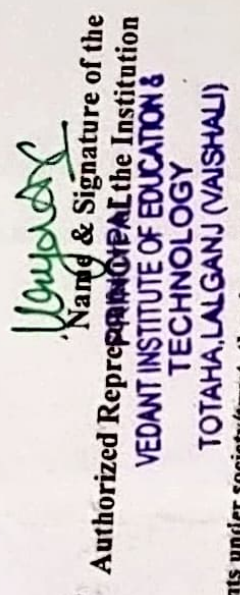 Name & Signature of the
Authorized Repre
the Institution
PRINCIPAL
VEDANT INSTITUTE OF EDUCATION &
TECHNOLOGY
TOTAHA, LALGANJ (VAISHALI)
nts under society/trust